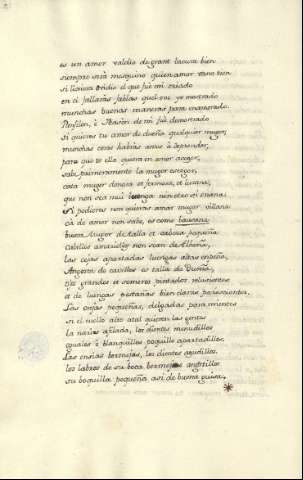 es un amor valdío de grant locura bien
siempre será mesquino quien amor vano tien
si lieres Ovidio el que fué mi criado
en él fallarás fablas quel ove yo mostrado
munchas buenas maneras para enamorado.
Pánfilo, è Nasón de mi fué demostrado
Si quieres tu amor de dueña qualquier muger,
munchas cosas habrías antes à deprender,
para que te ella quiera en amor acoger,
sabe primeramente la muger escoger,
cata muger donosa et fermosa, et lozana,
que non sea mui luenga nin otro si enana
si pudieres non quieras amar muger villana
cà de amor non sabe, es como baüsana,
busca Muger de talla et cabeza pequeña
Cabellos amarillos non sean de Alheña,
las cejas apartadas luengas altas en peña,
Angosta de cavellos es talla de Dueña,
ojos grandes et someros pintados relucientes
et de luengas pestañas bien claras parescientes.
Las orejas pequeñas, delgadas para mientes
si el cuello alto atal quieren las gentes
la nariz afilada, los dientes menudillos
eguales è blanquillos poquillo apartadillos.
Las ensias bermejas, los dientes agudillos,
los labros de su boca bermejos angostillos
su boquilla pequeña asi de buena guisa,
*